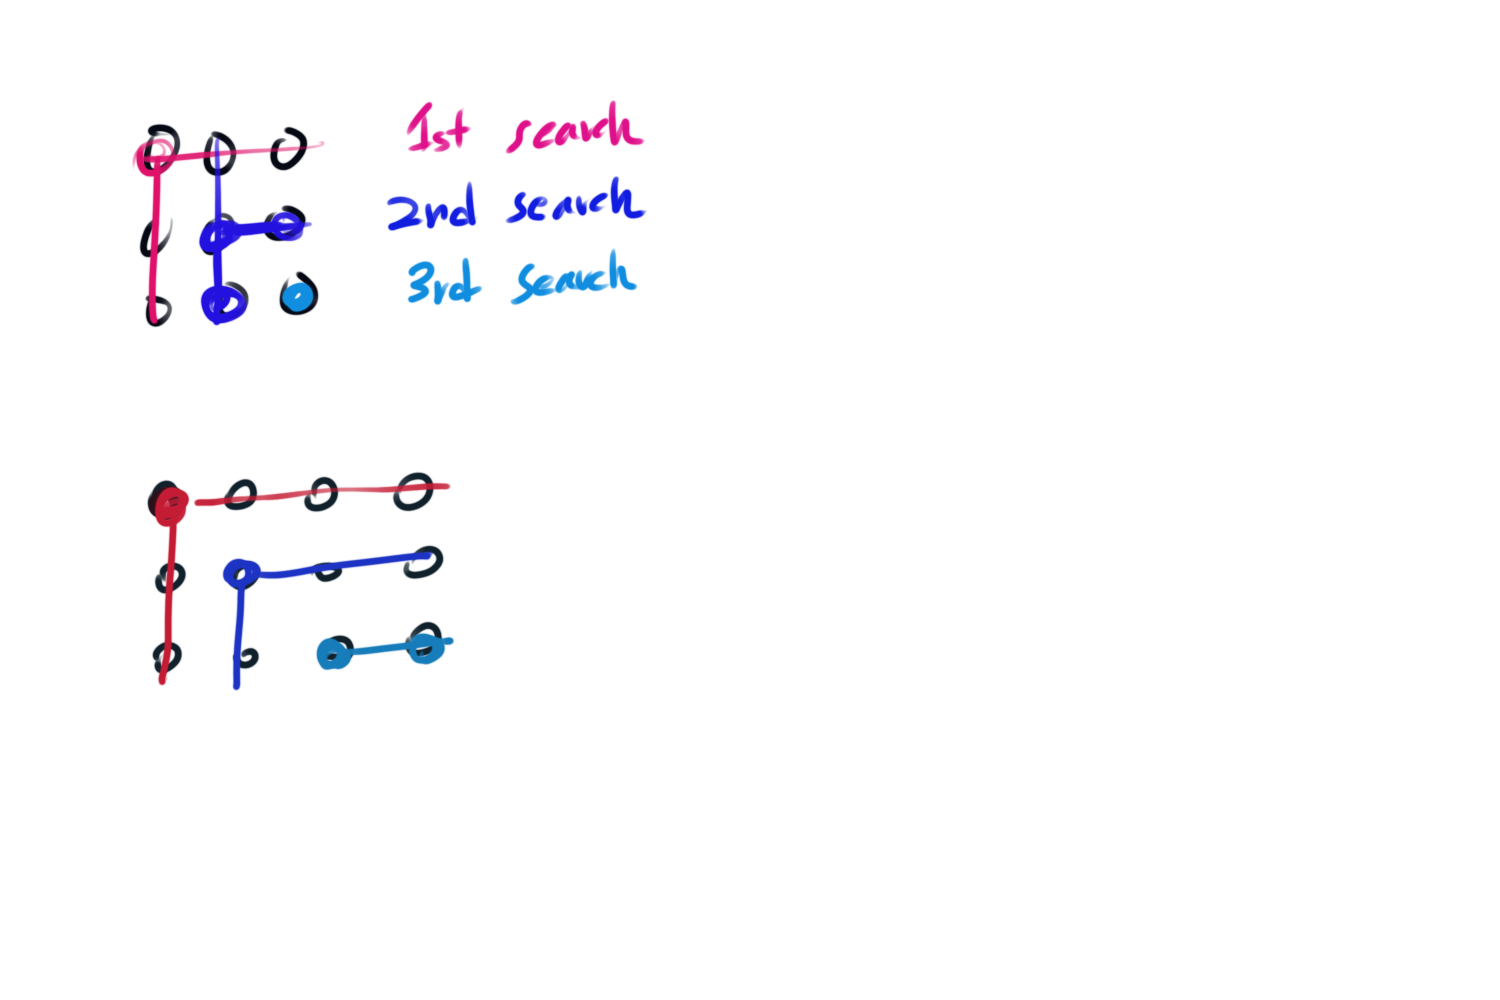 1st search
2nd search
3rd search